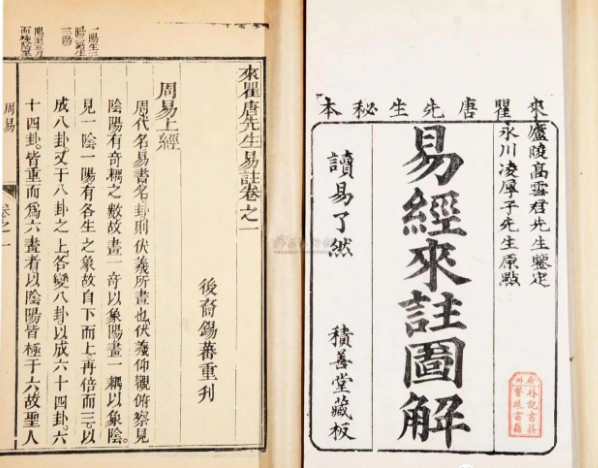 來瞿唐先生秘本
廬陵高雪君先生鑒定
永川凌厚子先生原點
易經來註圖解
讀易了然
積善堂藏板
來瞿唐先生易註卷之一
後裔錫蕃重刋
周易上經
周代名易書名卦則伏羲所畫也伏羲仰觀俯察見
陰陽有奇耦之數故畫一奇以象陽畫一耦以象陰。
見一陰一陽有各生之象故自下而上再倍而三以
成八卦又于八卦之上各變八卦以成六十四卦。六
十四卦。皆重而爲六畫者以陰陽皆極于六故聖人
周易
卷之一